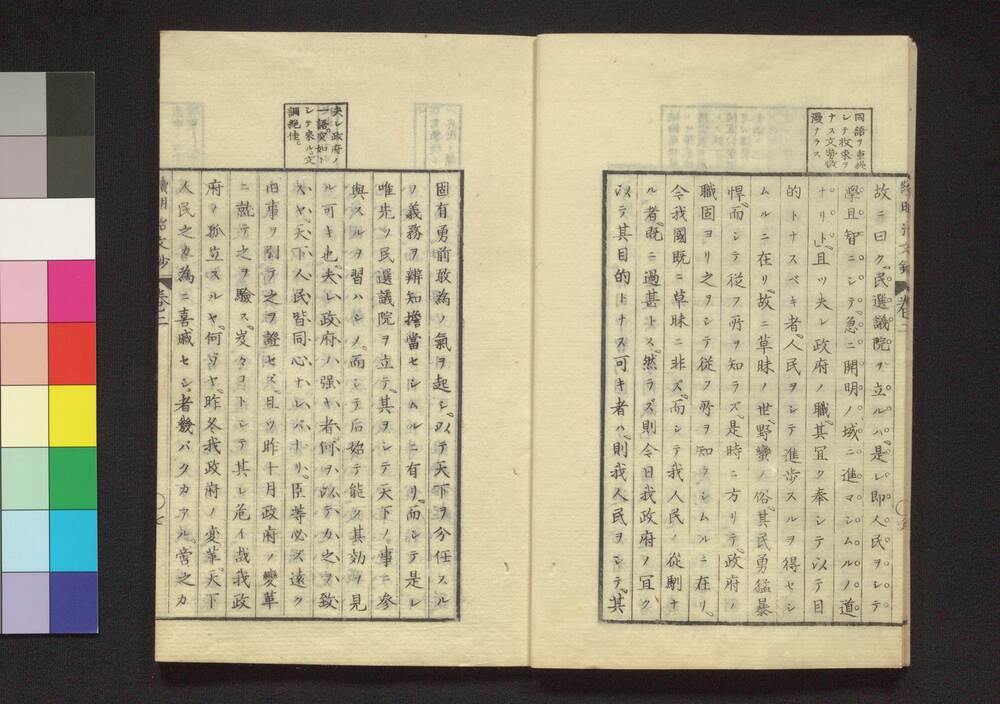 同語ヲ重疊
シテ收束ヲ
ナス文勢散
漫ナラス
故ニ曰ク民選議院ヲ立ルハ是レ即人民ヲシテ
學且智ニシテ急ニ開明ノ域ニ進マシムルノ道
ナリト且ツ夫レ政府ノ職其冝ク奉シテ以テ目
的トナスベキ者人民ヲシテ進歩スルヲ得セシ
ムルニ在リ故ニ草昧ノ世野蠻ノ俗其民勇猛暴
悍而シテ從フ所ヲ知ラズ是時ニ方リテ政府ノ
職固ヨリ之ヲシテ從フ所ヲ知ラシムルニ在リ
今我國既ニ草昧ニ非ズ而シテ我人民ノ從馴ナ
ル者既ニ過甚トス然ラズ則今日我政府ノ冝ク
以テ其目的トナス可キ者ハ則我人民ヲシテ其
夫レ政府ノ
一語突如ト
シテ來ル文
調絶佳
固有勇前敢為ノ氣ヲ起シ以テ天下ヲ分任スル
ノ義務ヲ辨知擔當セシムルニ有リ而シテ是レ
唯先ツ民選議院ヲ立テ其ヲシテ天下ノ事ニ參
與スルヲ習ハシメ而シテ后始テ能ク其効ヲ見
ル可キ也夫レ政府ノ强キ者何ヲ以テカ之ヲ致
スヤ天下人民皆同心ナレバナリ臣等必ズ遠ク
旧事ヲ引テ之ヲ證セズ且ツ昨十月政府ノ變革
ニ就テ之ヲ驗ス岌々コトシテ其レ危イ哉我政
府ノ孤立スルヤ何ゾヤ昨冬我政府ノ変革天下
人民之カ為ニ喜戚セシ者幾バクカアル啻之カ
續明治文鈔 卷二